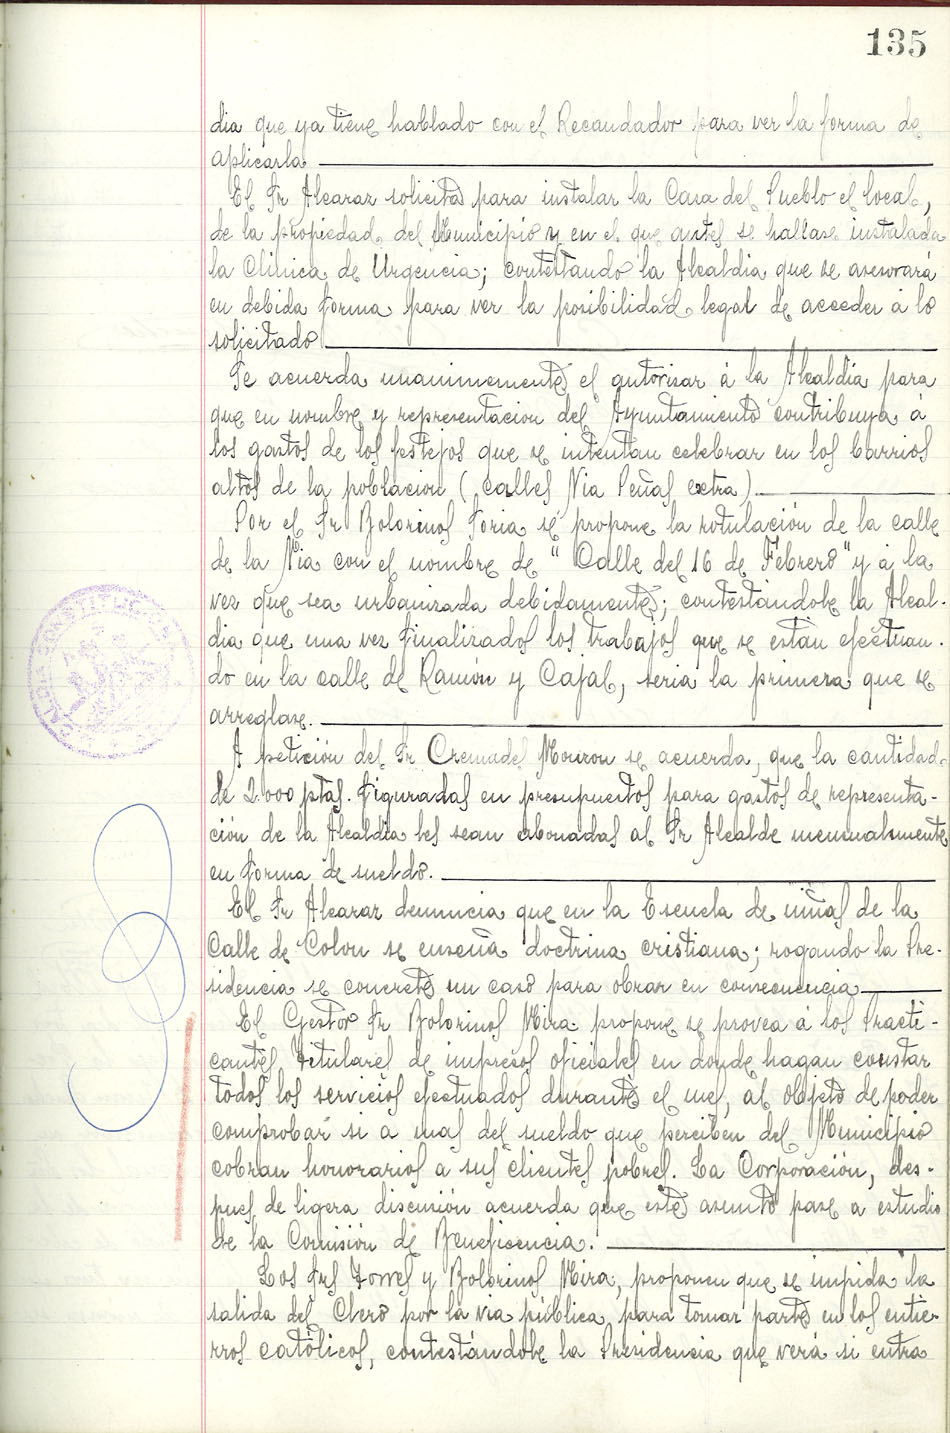 135
dia que ya tiene hablado con el Recaudador para ver la forma de
aplicarla
El Sr Alcaraz solicita para instalar la Casa del Pueblo el local,
de la propiedad, del Municipio y en el que antes se hallase instalada
la Clinica de Urgencia; contestando la Alcaldia que se asesorará
en debida forma para ver la posibilidad legal de acceder á lo
solicitado
Se acuerda unanimemente el autorizar á la Alcaldía para
que en nombre y representacion del Ayuntamiento contribuya á
los gastos de los festejos que se intentan celebrar en los barrios
altos de la poblacion (calles Nia Peñas extra)
Por el Sr Bolorinos Soria se propone la rotulación de la calle
de la Nia con el nombre de "Calle del 16 de Febrero" y á la
vez que sea urbanizada debidamente; contestándole la Alcal-
dia que una vez finalizados los trabajos que se están efectuan-
do en la calle de Ramón y Cajal, seria la primera que se
arreglase.
A petición del Sr Cremades Monzon se acuerda, que la cantidad
de 2.000 ptas. figuradas en presupuestos para gastos de representa-
ción de la Alcaldia les sean abonadas al Sr Alcalde mensualmente
en forma de sueldo.
El Sr Alcaraz denuncia que en la Escuela de niñas de la
Calle de Colon se enseña doctrina cristiana; rogando la Pre-
sidencia se concrete un caso para obrar en consecuencia
El Gestor Sr Bolorinos Mira propone se provea á los Practi-
cantes Titulares de impresos oficiales en donde hagan constar
todos los servicios efectuados durante el mes, al objeto de poder
comprobar si a mas del sueldo que perciben del Municipio
cobran honorarios a sus clientes pobres. La Corporación, des-
pues de ligera discusión acuerda que este asunto pase a estudio
de la Comisión de Beneficencia.
Los Srs Torres y Bolorinos Mira, proponen que se impida la
salida del Clero por la via pública para tomar parte en los entie-
rros católicos, contestándole la Presidencia que verá si entra